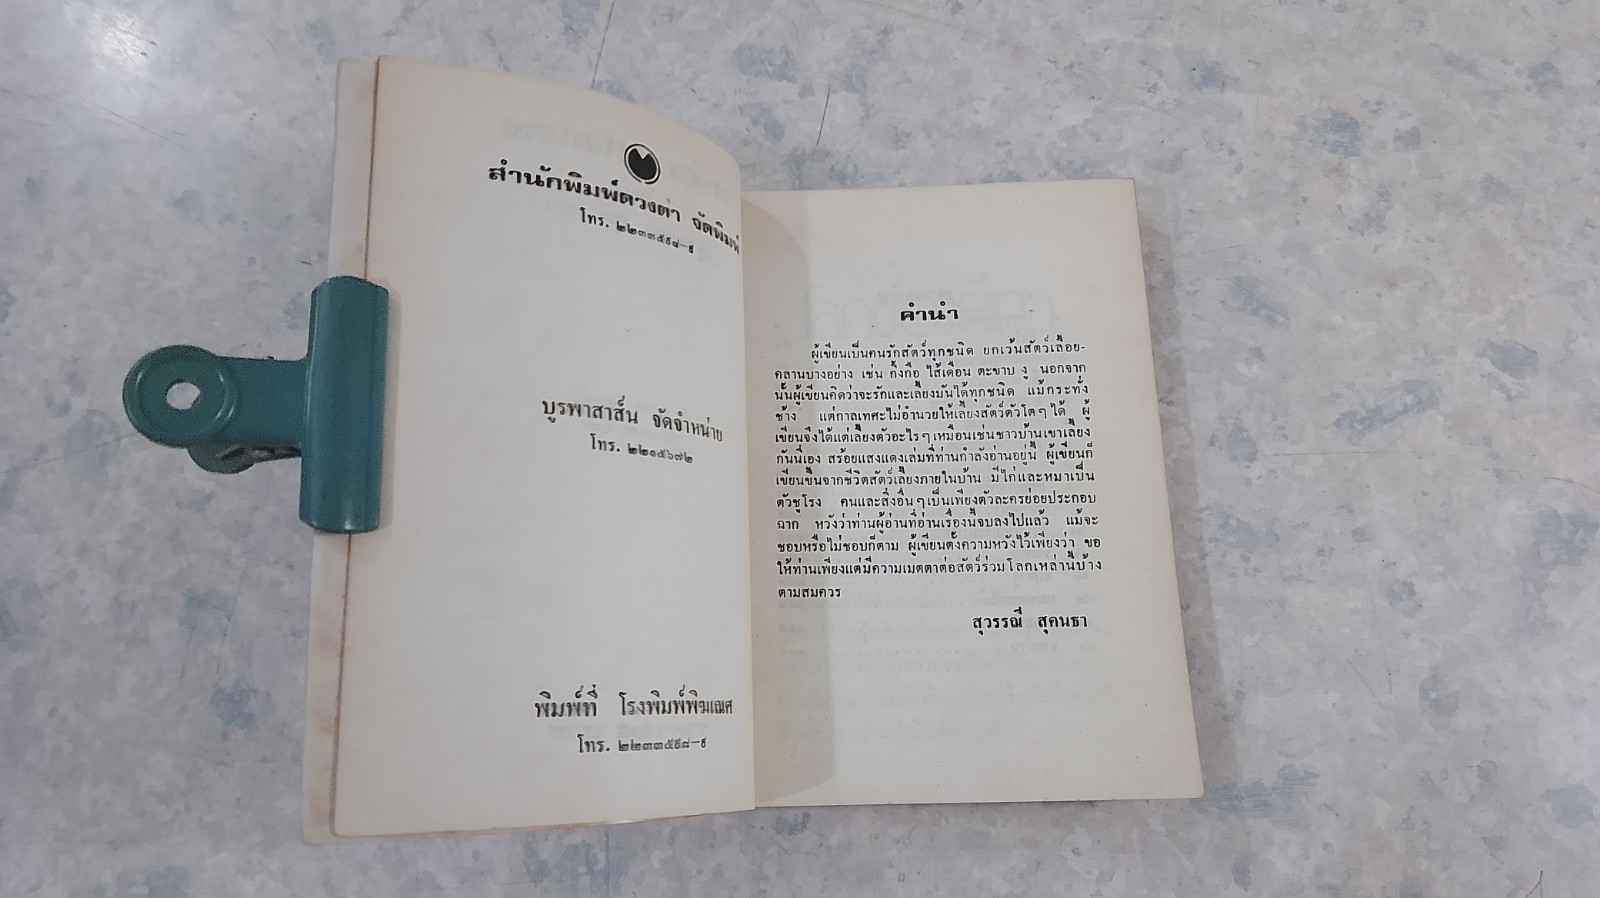 สำนักพิมพ์ดวงตา จัดพิมพ์
โทร. ๒๒๓๓๕๙๘-๙
บูรพาสาส์น จัดจำหน่าย
โทร. ๒๒๑๕๖๗๒
พิมพ์ที่ โรงพิมพ์พิฆเณศ
โทร. ๒๒๓๓๕๙๘-๙
คำนำ
ผู้เขียนเป็นคนรักสัตว์ทุกชนิด ยกเว้นสัตว์เลื้อย-
คลานบางอย่าง เช่น กิ้งกือ ไส้เดือน ตะขาบ งู นอกจาก
นั้นผู้เขียนคิดว่าจะรักและเลี้ยงมันได้ทุกชนิด แม้กระทั่ง
ช้าง แต่กาลเทศะไม่อำนวยให้เลี้ยงสัตว์ตัวโตๆ ได้ ผู้
เขียนจึงได้แต่เลี้ยงตัวอะไรๆ เหมือนเช่นชาวบ้านเขาเลี้ยง
กันนี่เอง สร้อยแสงแดงเล่มที่ท่านกำลังอ่านอยู่นี้ ผู้เขียนก็
เขียนขึ้นจากชีวิตสัตว์เลี้ยงภายในบ้าน มีไก่และหมาเป็น
ตัวชูโรง คนและสิ่งอื่นๆ เป็นเพียงตัวละครย่อยประกอบ
ฉาก หวังว่าท่านผู้อ่านที่อ่านเรื่องนี้จบลงไปแล้ว แม้จะ
ชอบหรือไม่ชอบก็ตาม ผู้เขียนตั้งความหวังไว้เพียงว่า ขอ
ให้ท่านเพียงแต่มีความเมตตาต่อสัตว์ร่วมโลกเหล่านี้บ้าง
ตามสมควร
สุวรรณี สุคนธา